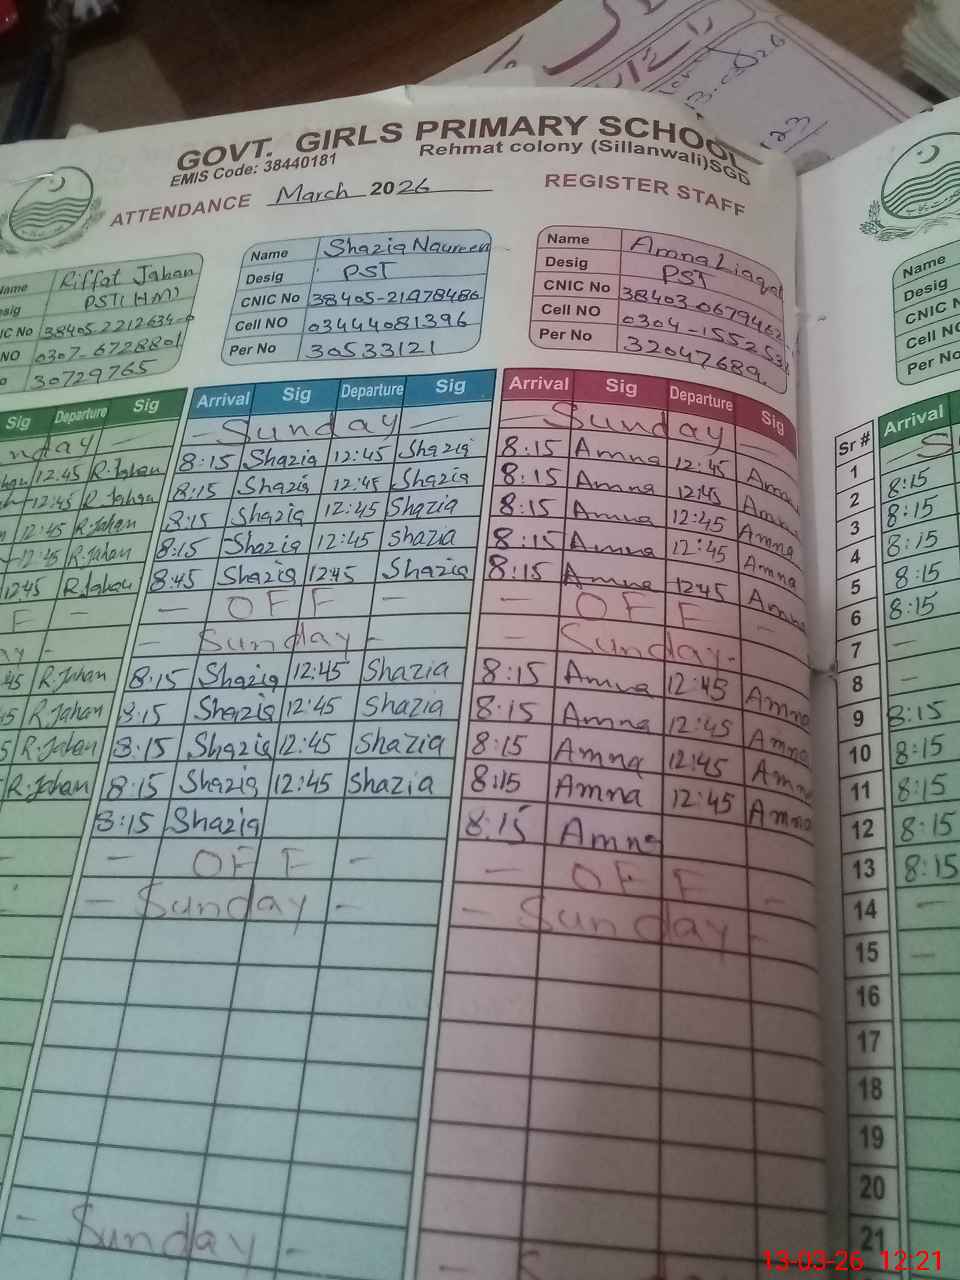 13.03.26
123
GOVT. GIRLS PRIMARY SCHOOL
EMIS Code: 38440181 Rehmat colony (Sillanwali)SGD
ATTENDANCE March 2026 REGISTER STAFF
Name Riffat Jahan
PST(HM)
CNIC No 38405 2212634-0
NO 0307-6728801
30729765
Name Shazia Naureen
Desig PST
CNIC No 38405-21978486
Cell NO 03444081396
Per No 30533121
Name Amna Liaqat
Desig PST
CNIC No 38403-0679462
Cell NO 0304-1552531
Per No 32047689
Name
Desig
CNIC N
Cell N
Per No
Sig Departure Sig Arrival Sig Departure Sig Arrival Sig Departure Sig Sr # Arrival
- Sunday - - Sunday -
12:45 R.Jahan 8:15 Shazia 12:45 Shazia 8:15 Amna 12:45 Amna 1
12:45 R.Jahan 8:15 Shazia 12:45 Shazia 8:15 Amna 12:45 Amna 2 8:15
12:45 R.Jahan 8:15 Shazia 12:45 Shazia 8:15 Amna 12:45 Amna 3 8:15
12:45 R.Jahan 8:15 Shazia 12:45 Shazia 8:15 Amna 12:45 Amna 4 8:15
12:45 R.Jahan 8:45 Shazia 12:45 Shazia 8:15 Amna 12:45 Amna 5 8:15
F - - OFF - - OFF - 6 8:15
- Sunday - - Sunday - 7 -
R.Jahan 8:15 Shazia 12:45 Shazia 8:15 Amna 12:45 Amna 8 -
R.Jahan 8:15 Shazia 12:45 Shazia 8:15 Amna 12:45 Amna 9 8:15
R.Jahan 8:15 Shazia 12:45 Shazia 8:15 Amna 12:45 Amna 10 8:15
R.Jahan 8:15 Shazia 12:45 Shazia 8:15 Amna 12:45 Amna 11 8:15
8:15 Shazia 8:15 Amna 12 8:15
- OFF - - OFF - 13 8:15
- Sunday - - Sunday - 14 -
15 -
16
17
18
19
20
- Sunday - 21
13-03-26 12:21